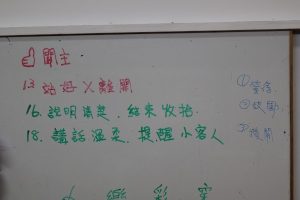 關主
13. 站好X離開
16. 說明清楚、結束收拾.
18. 講話溫柔、提醒小客人
①
②
③
樂彩